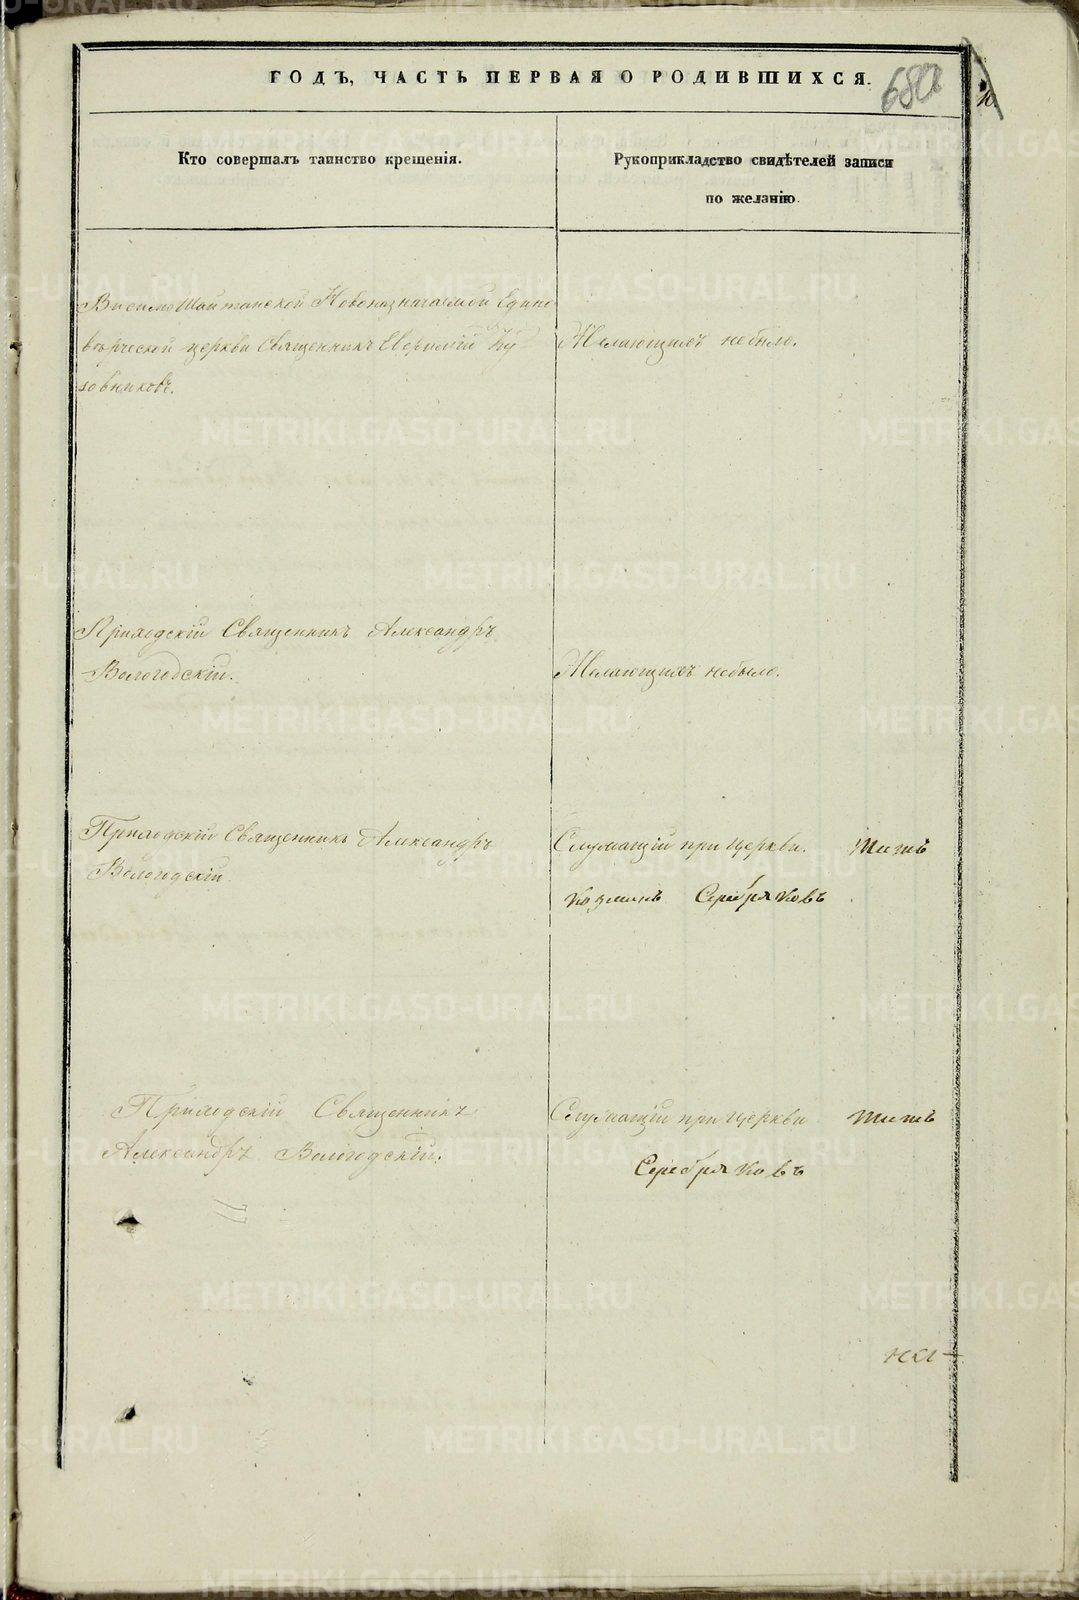 ГОДЪ, ЧАСТЬ ПЕРВАЯ О РОДИВШИХСЯ.
680
Кто совершалъ таинство крещенія.
Рукоприкладство свидѣтелей записи
по желанію.
Висимо Шайтанской Новоназначаемой Едино
вѣрческой церкви Священникъ Іеремій Ку
зовниковъ.
Желающихъ небыло.
Приходскій Священникъ Александръ
Вологодскій.
Желающихъ небыло.
Приходскій Священникъ Александръ
Вологодскій.
Служащій при Церкви. Титъ
Козминъ Серебряковъ
Приходскій Священникъ
Александръ Вологодскій.
Служащій при Церкви Титъ
Серебряковъ
METRIKI.GASO-URAL.RU